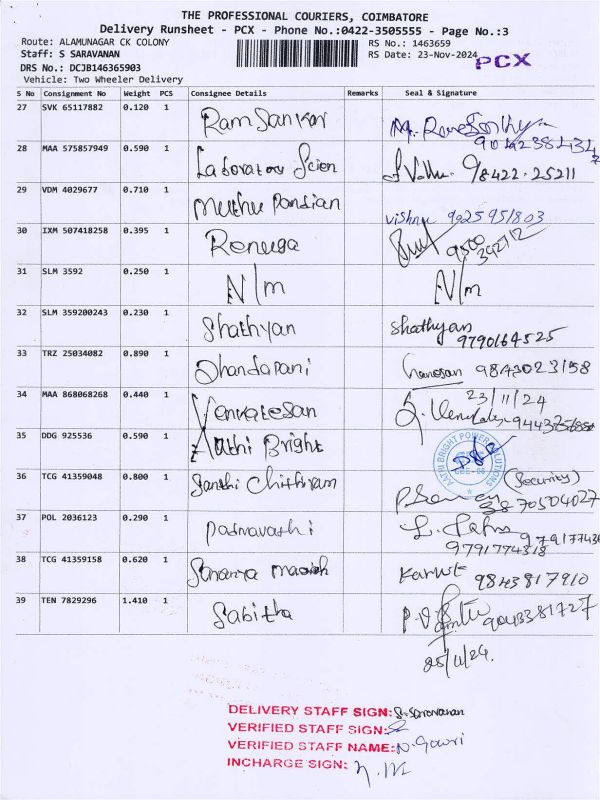 THE PROFESSIONAL COURIERS, COIMBATORE
Delivery Runsheet - PCX - Phone No.:0422-3505555 - Page No.:3
Route: ALAMUNAGAR CK COLONY
RS No.: 1463659
Staff: S SARAVANAN
RS Date: 23-Nov-2024
PCX
DRS No.: DCJB146365903
Vehicle: Two Wheeler Delivery
S No Consignment No Weight PCS Consignee Details Remarks Seal & Signature
27 SVK 65117882 0.120 1 Ram Sankar
28 MAA 575857949 0.590 1 Laboratory Scien 98422-25211
29 VDM 4029677 0.710 1 Muthu Pandian Vishnu 9025951803
30 IXM 507418258 0.395 1 Renuga 9500
342712
31 SLM 3592 0.250 1 N/m N/m
32 SLM 359200243 0.230 1 Shathyan Shathyan
9790164525
33 TRZ 25034082 0.890 1 Dhandapani 9843023158
34 MAA 868068268 0.440 1 Venkatesan 23/11/24
35 DDG 925536 0.590 1 Aathi Bright
AATHI BRIGHT POWER SOLUTIONS
36 TCG 41359048 0.800 1 Santhi Chithiram (Security)
37 POL 2036123 0.290 1 Padmavathi
9791774318
38 TCG 41359158 0.620 1 9843817910
39 TEN 7829296 1.410 1 Sabitha 9043381727
25/11/24.
DELIVERY STAFF SIGN: S. Saravanan
VERIFIED STAFF SIGN:
VERIFIED STAFF NAME: N. Gowri
INCHARGE SIGN: